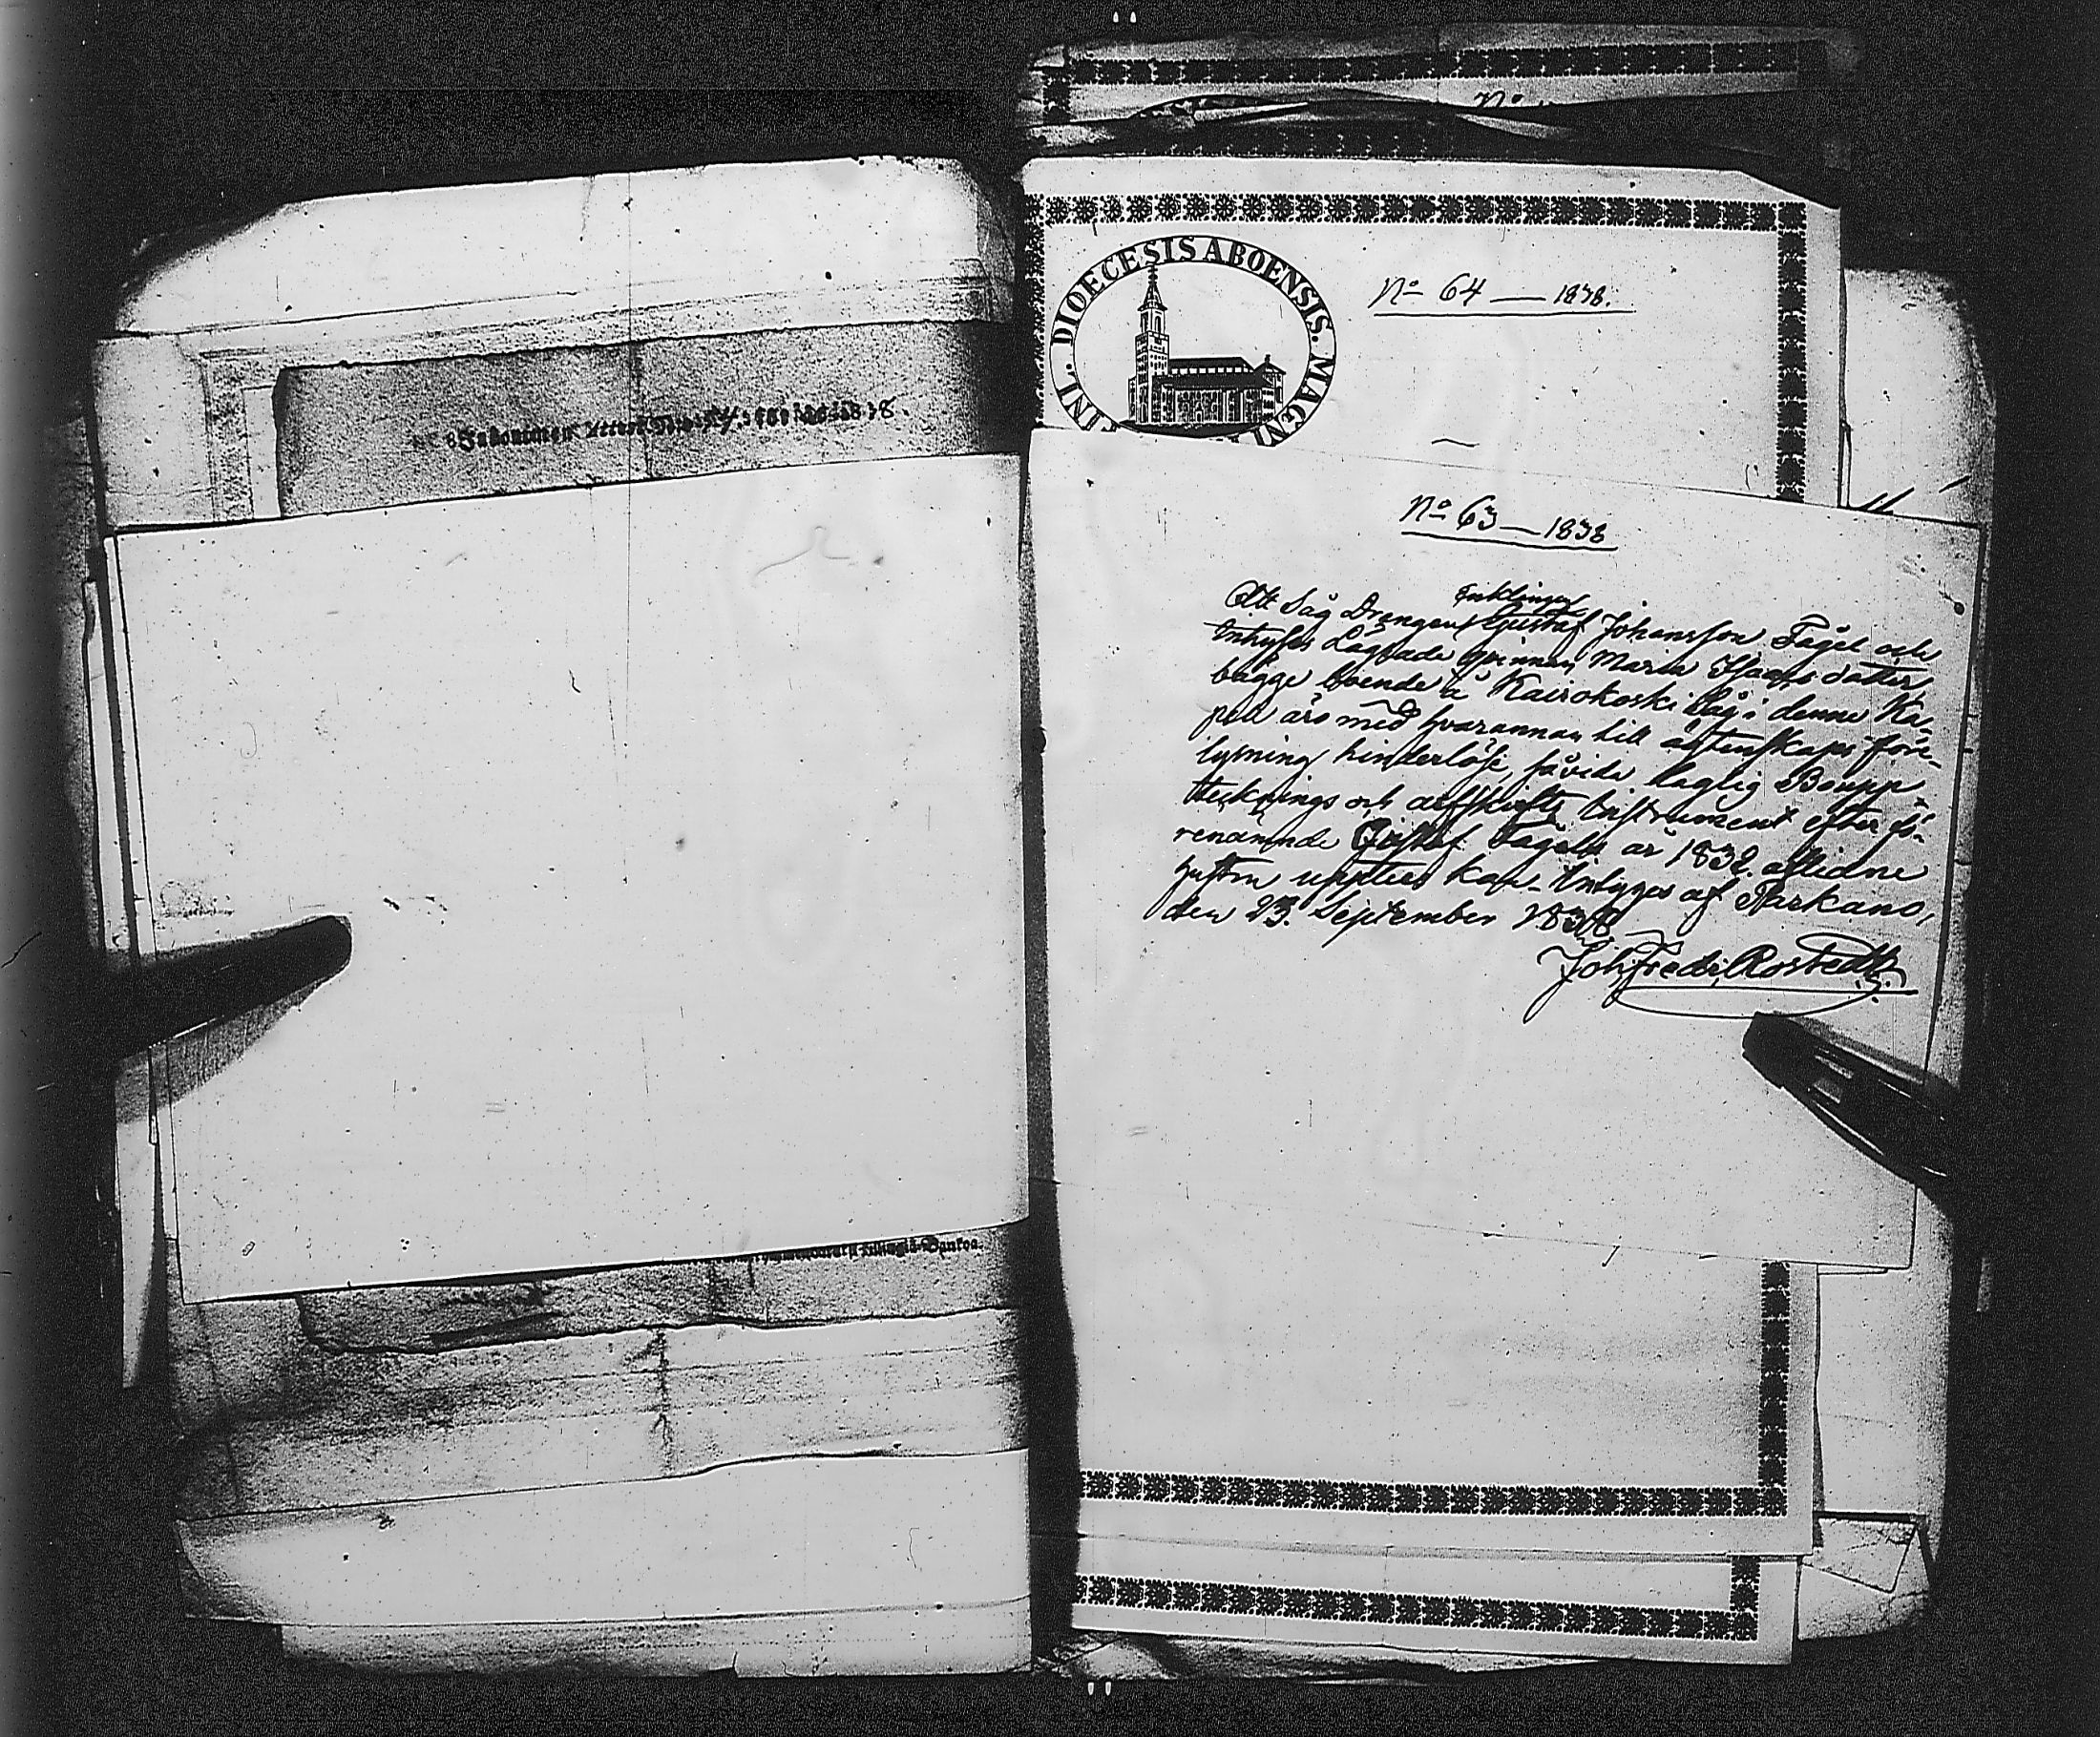 DIOECESIS ABOENSIS. MAGNI
FINL.
No 64 — 1838.
No 63 — 1838
Enklingen
Att Såg Drengen Gustaf Johansson Fågel och
Inhyses Lägrade qvinnan Maria Isaaksdotter,
bägge boende å Kairokoski såg i denne Ka-
pell äro med hvarannan till ägtenskaps före-
lysning hinderlöse, såvida laglig Boupp-
teknings och arfskifts Instrument efter fö-
renämnde Gustaf Fågels år 1838 aflidne
hustru upptees kan. Intygges af Parkano,
den 23. September 1838.
Joh Fredr. Rostedt